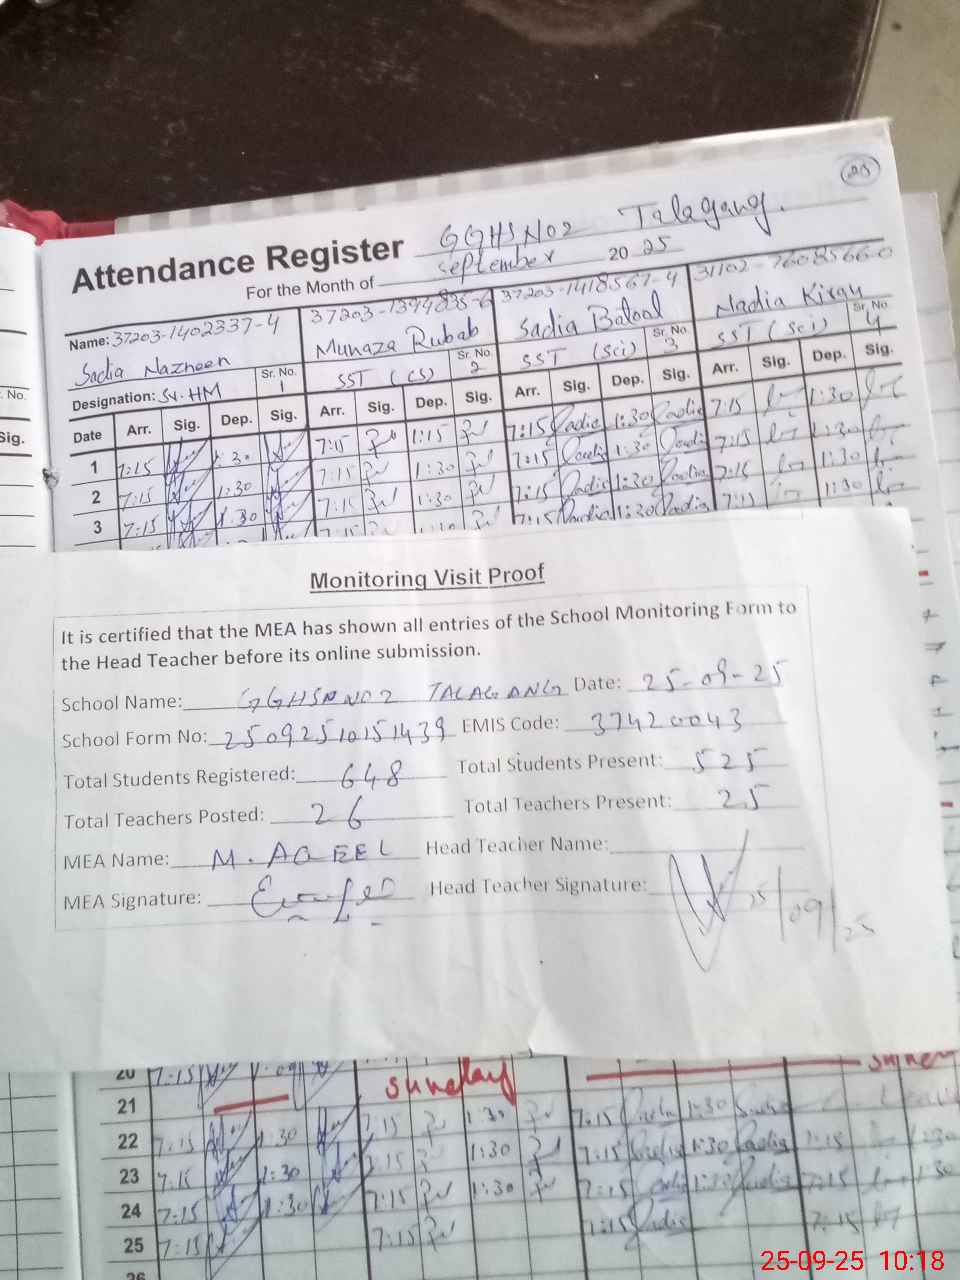 25
Attendance Register GGHSNO2 Talagang.
For the Month of September 2025
Name: 37203-1402337-4 37203-1394835-6 37203-1418567-4 31102-7608566-0
Sadia Nazneen Munaza Rubab Sadia Batool Nadia Kiran
Designation: Sr. HM Sr. No. 1 SST (CS) Sr. No. 2 SST (Sci) Sr. No. 3 SST (Sci) Sr. No. 4
Date Arr. Sig. Dep. Sig. Arr. Sig. Dep. Sig. Arr. Sig. Dep. Sig. Arr. Sig. Dep. Sig.
1 7:15 1:30 7:15 1:15 7:15 Sadia 1:30 Sadia 7:15 1:30
2 7:15 1:30 7:15 1:30 7:15 Sadia 1:30 Sadia 7:15 1:30
3 7:15 1:30 7:15 1:30 7:15 Sadia 1:30 Sadia 7:15 1:30
7:15 Sadia 1:30 Sadia 7:15 1:30
No.
Sig.
Monitoring Visit Proof
It is certified that the MEA has shown all entries of the School Monitoring Form to
the Head Teacher before its online submission.
School Name: GGHSNNO2 TALAGANG Date: 25-09-25
School Form No: 25092510151439 EMIS Code: 37420043
Total Students Registered: 648 Total Students Present: 525
Total Teachers Posted: 26 Total Teachers Present: 25
MEA Name: M. AQEEL Head Teacher Name:
MEA Signature: Head Teacher Signature: 25/09/25
20 7:15
21 Sunday Sunday
22 7:15 1:30 7:15 1:30 7:15 1:30
23 7:15 1:30 7:15 1:30 7:15 Sadia 1:30 Sadia 7:15 1:30
24 7:15 1:30 7:15 1:30 7:15 Sadia 1:30 Sadia 7:15 1:30
25 7:15 7:15 7:15 Sadia 7:15
26
25-09-25 10:18